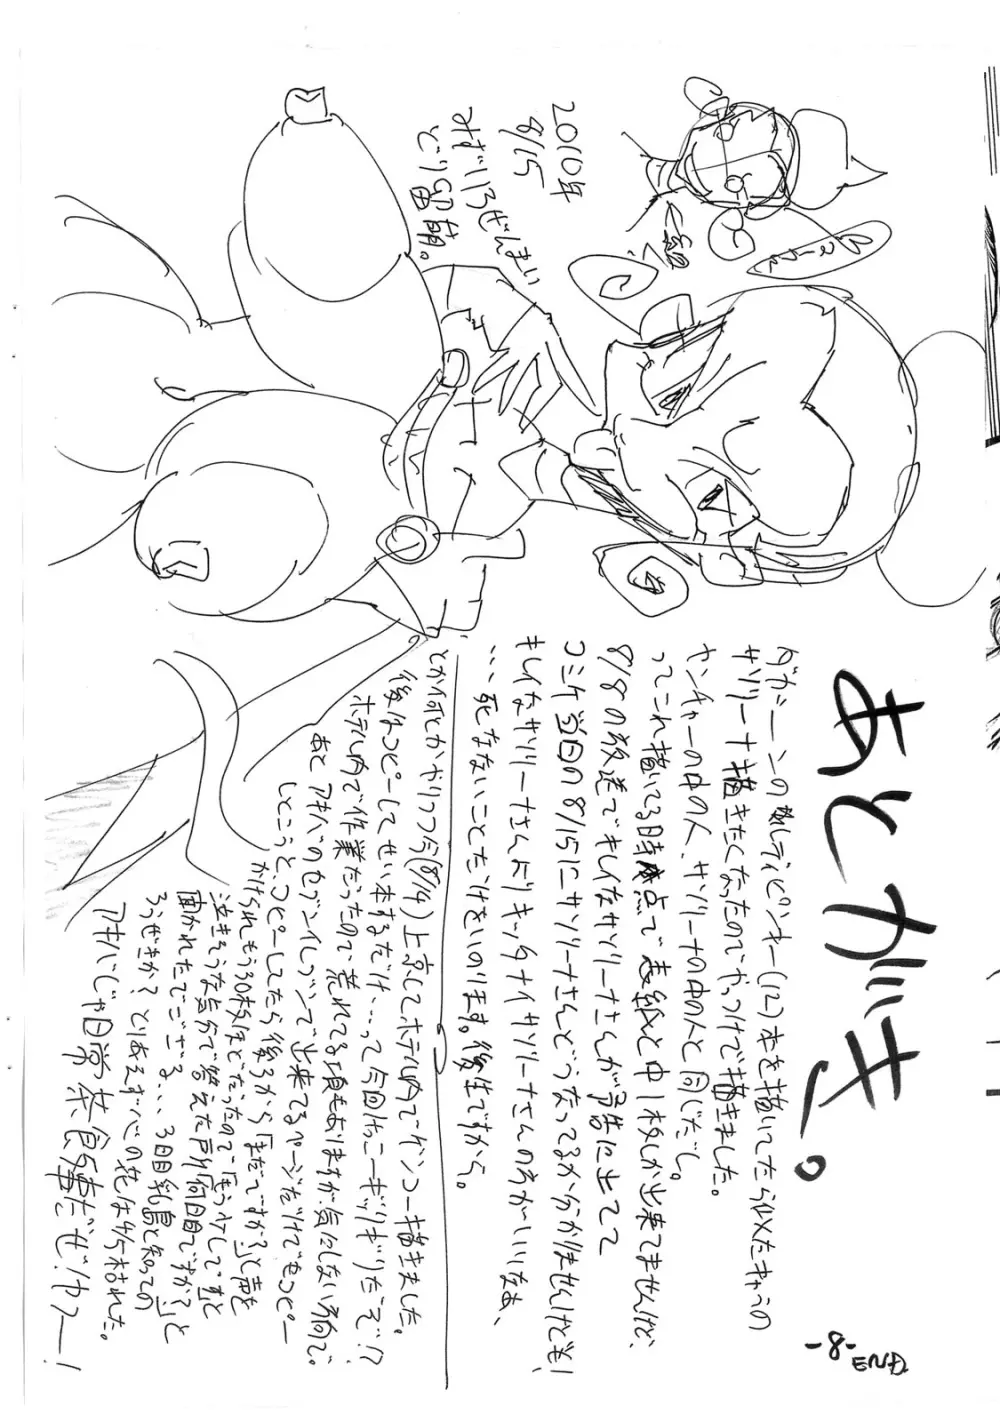 あとがき。
ダガシーンの敵レディビンキー(12)本を描いてたら似たキャラの
サソリーナ描きたくなったのでやっつけで描きました。
ヤンチャーの中の人、サソリーナの中の人と同じだし。
ってこれ描いてる時点で表紙と中1枚しか出来てませんけど、
8/8の放送でキレイなサソリーナさんが予告に出てて
コミケ当日の8/15にサソリーナさんどうなってるか分かりませんけども、
キレイなサソリーナさんよりキッタナイサソリーナさんの方がいいなぁ、
…死なないことだけをいのります。後生ですから。
とか何とかやりつつ今(8/14)上京してホテル内でゲンコー描きました。
後はコピーしてせい本するだけ…って今回けっこーギッリギリだぞ!?
ホテル内で作業だったので荒れてる項もありますが気にしない方向で。
あと アキバのセブンイレブンで出来てるページだけでもコピー
しとこうと、コピーしてたら後ろから「まだですか?」と声を
かけられもう30枚ほどだったので「もう少しです」と
泣きそうな気分で答えた所「何日目ですか?」と
聞かれたでござる… 3日目乳島と知っての
ろうぜきか? とりあえず心の花は4/5枯れた。
アキバじゃ日常茶飯事だぜ!ヤフー!
2010年
8/15
みずいろぜんまい
どり卵萌。
-8-
END